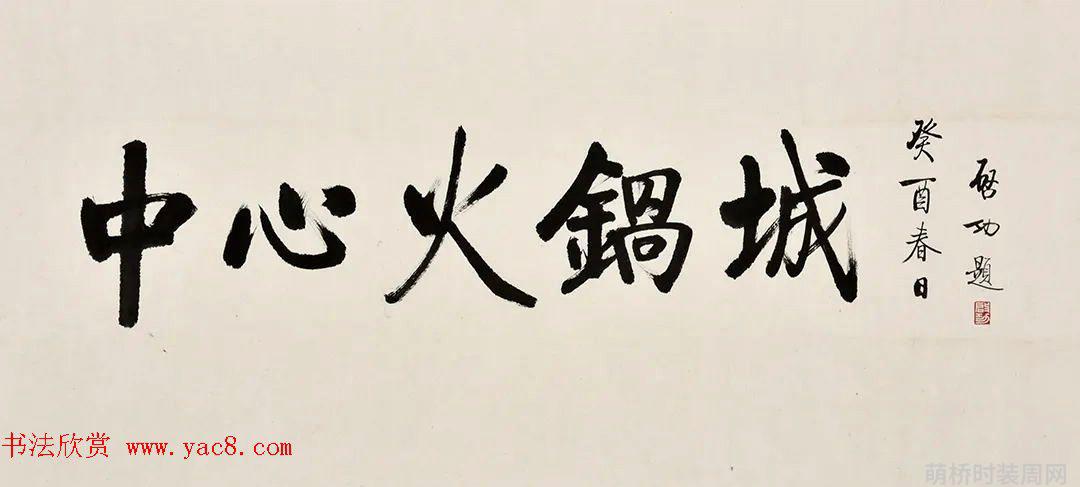 中心火鍋城
癸酉春日
啓功題
啓功
书法欣赏 www.yac8.com
萌桥时装周网